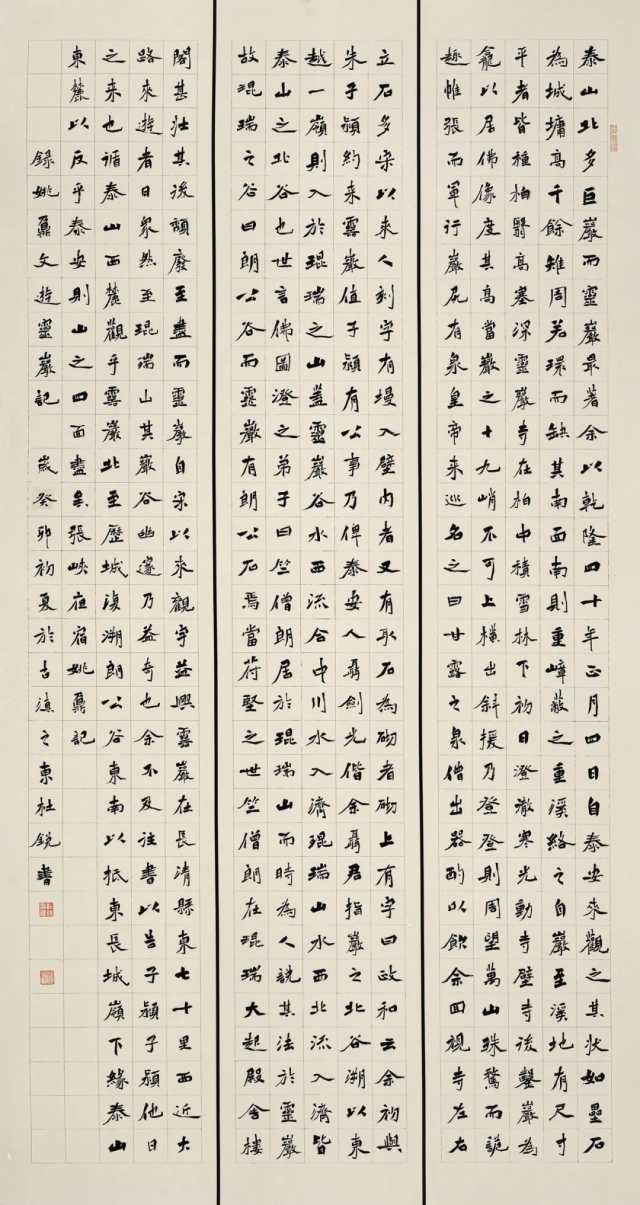 泰山北多巨巖而靈巖最著余以乾隆四十年正月四日自泰安來觀之其狀如壘石
為城墉高千餘雉周若環而缺其南面南則重嶂蔽之重溪絡之自巖至溪地有尺寸
平者皆種柏翳高塞深靈巖寺在柏中積雪林下初日澄澈寒光動寺壁寺後鑿巖為
龕以居佛像度其高當巖之十九峭不可上橫出斜援乃登登則周望萬山殊騖而詭
趣帷張而軍行巖尻有泉皇帝来巡名之曰甘露之泉僧出器酌以飲余回視寺左右
立石多宋以来人刻字有墁入壁内者又有取石為砌者砌上有字曰政和云余初與
朱子潁約来靈巖值子潁有公事乃俾泰安人聶劍光偕余聶君指巖之北谷溯以東
越一嶺則入於琨瑞之山蓋靈巖谷水西流合中川水入濟琨瑞山水西北流入濟皆
泰山之北谷也世言佛圖澄之弟子曰竺僧朗居於琨瑞山而時為人說其法於靈巖
故琨瑞之谷曰朗公谷而靈巖有朗公石焉當苻堅之世竺僧朗在琨瑞大起殿舍樓
閣甚壯其後頹廢至盡而靈巖自宋以來觀宇益興靈巖在長清縣東七十里西近大
路來遊者日眾然至琨瑞山其巖谷幽邃乃益奇也余不及往書以告子潁子潁他日
之来也循泰山西麓觀乎靈巖北至歷城復溯朗公谷東南以抵東長城嶺下緣泰山
東麓以反乎泰安則山之四面盡矣張峽夜宿姚鼐記
錄姚鼐文遊靈巖記 歲癸卯初夏於古滇之東杜銳書